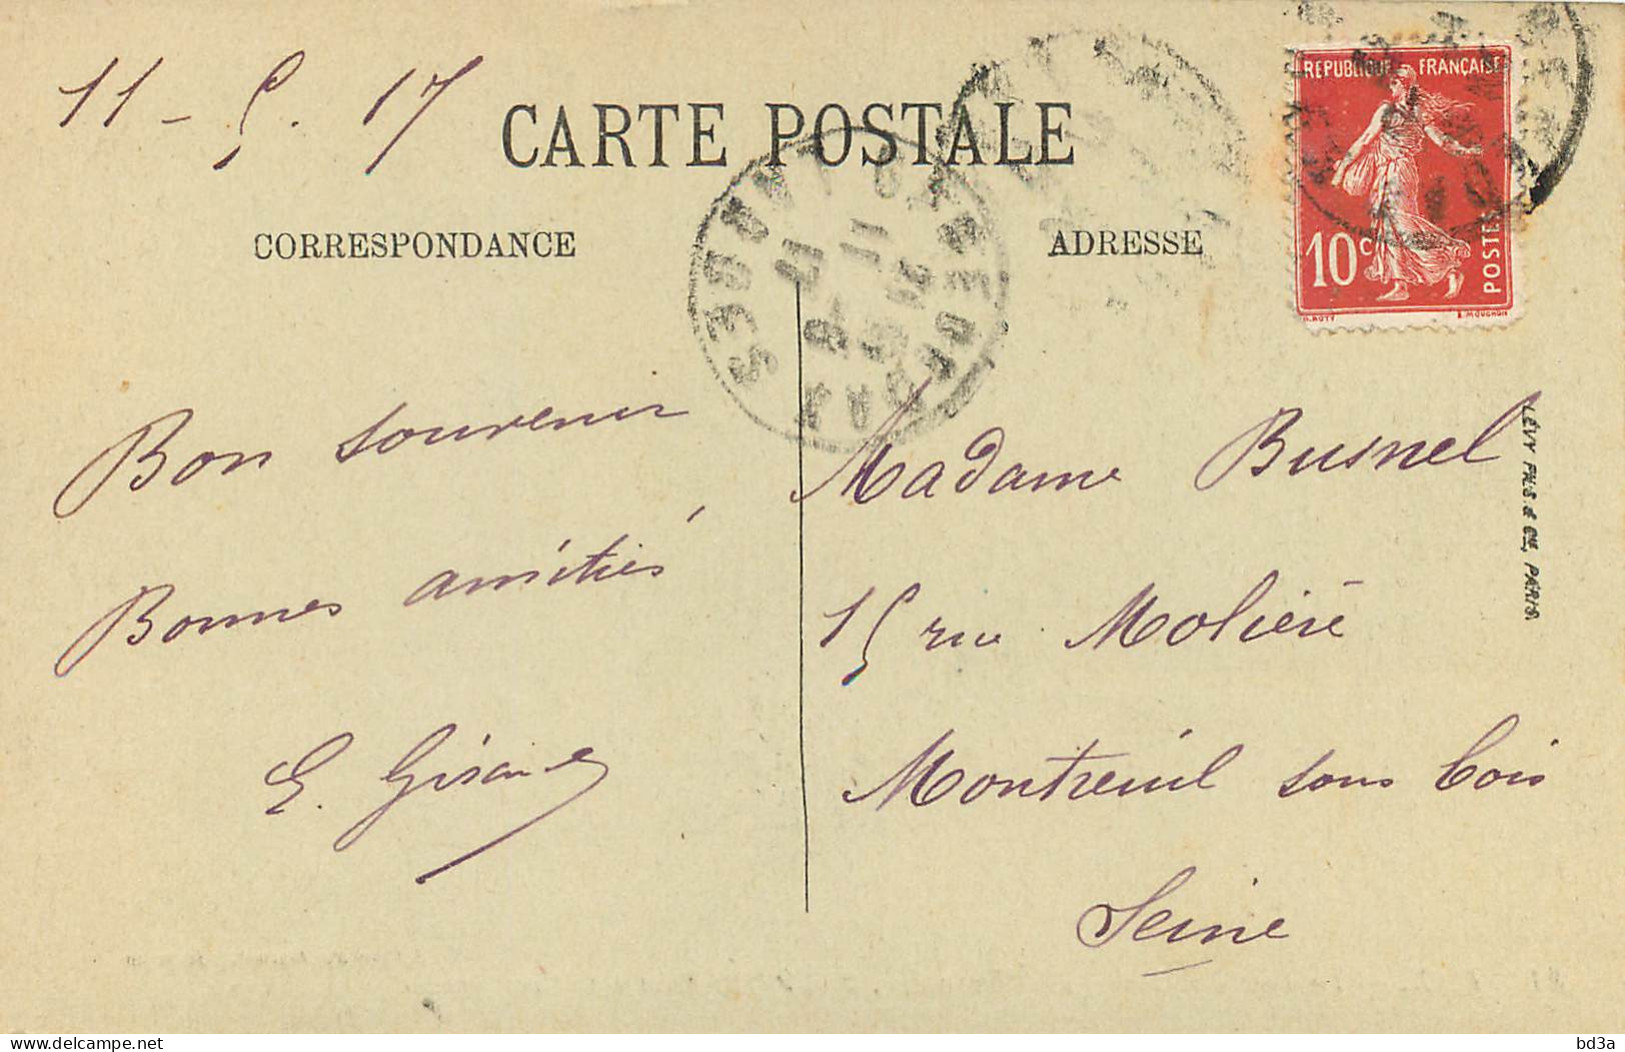 11 - 5. 17
CARTE POSTALE
CORRESPONDANCE
ADRESSE
REPUBLIQUE FRANÇAISE
10c
POSTES
O. ROTY
E. MOUCHON
Bon souvenir
Bonnes amitiés
E. Girard
Madame Busnel
15 rue Molière
Montreuil sous bois
Seine
LÉVY FILS & Cie, PARIS.
delcampe.net
bd3a